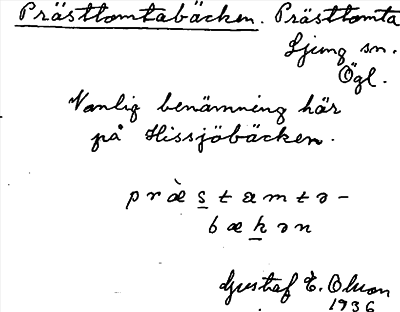 Prästtomtabäcken. Prästtomta
Ljung sn.
Ögl.
Vanlig benämning här
på Hissjöbäcken.
præ̀stamtə-
bækən
Gustaf E. Olson
1936